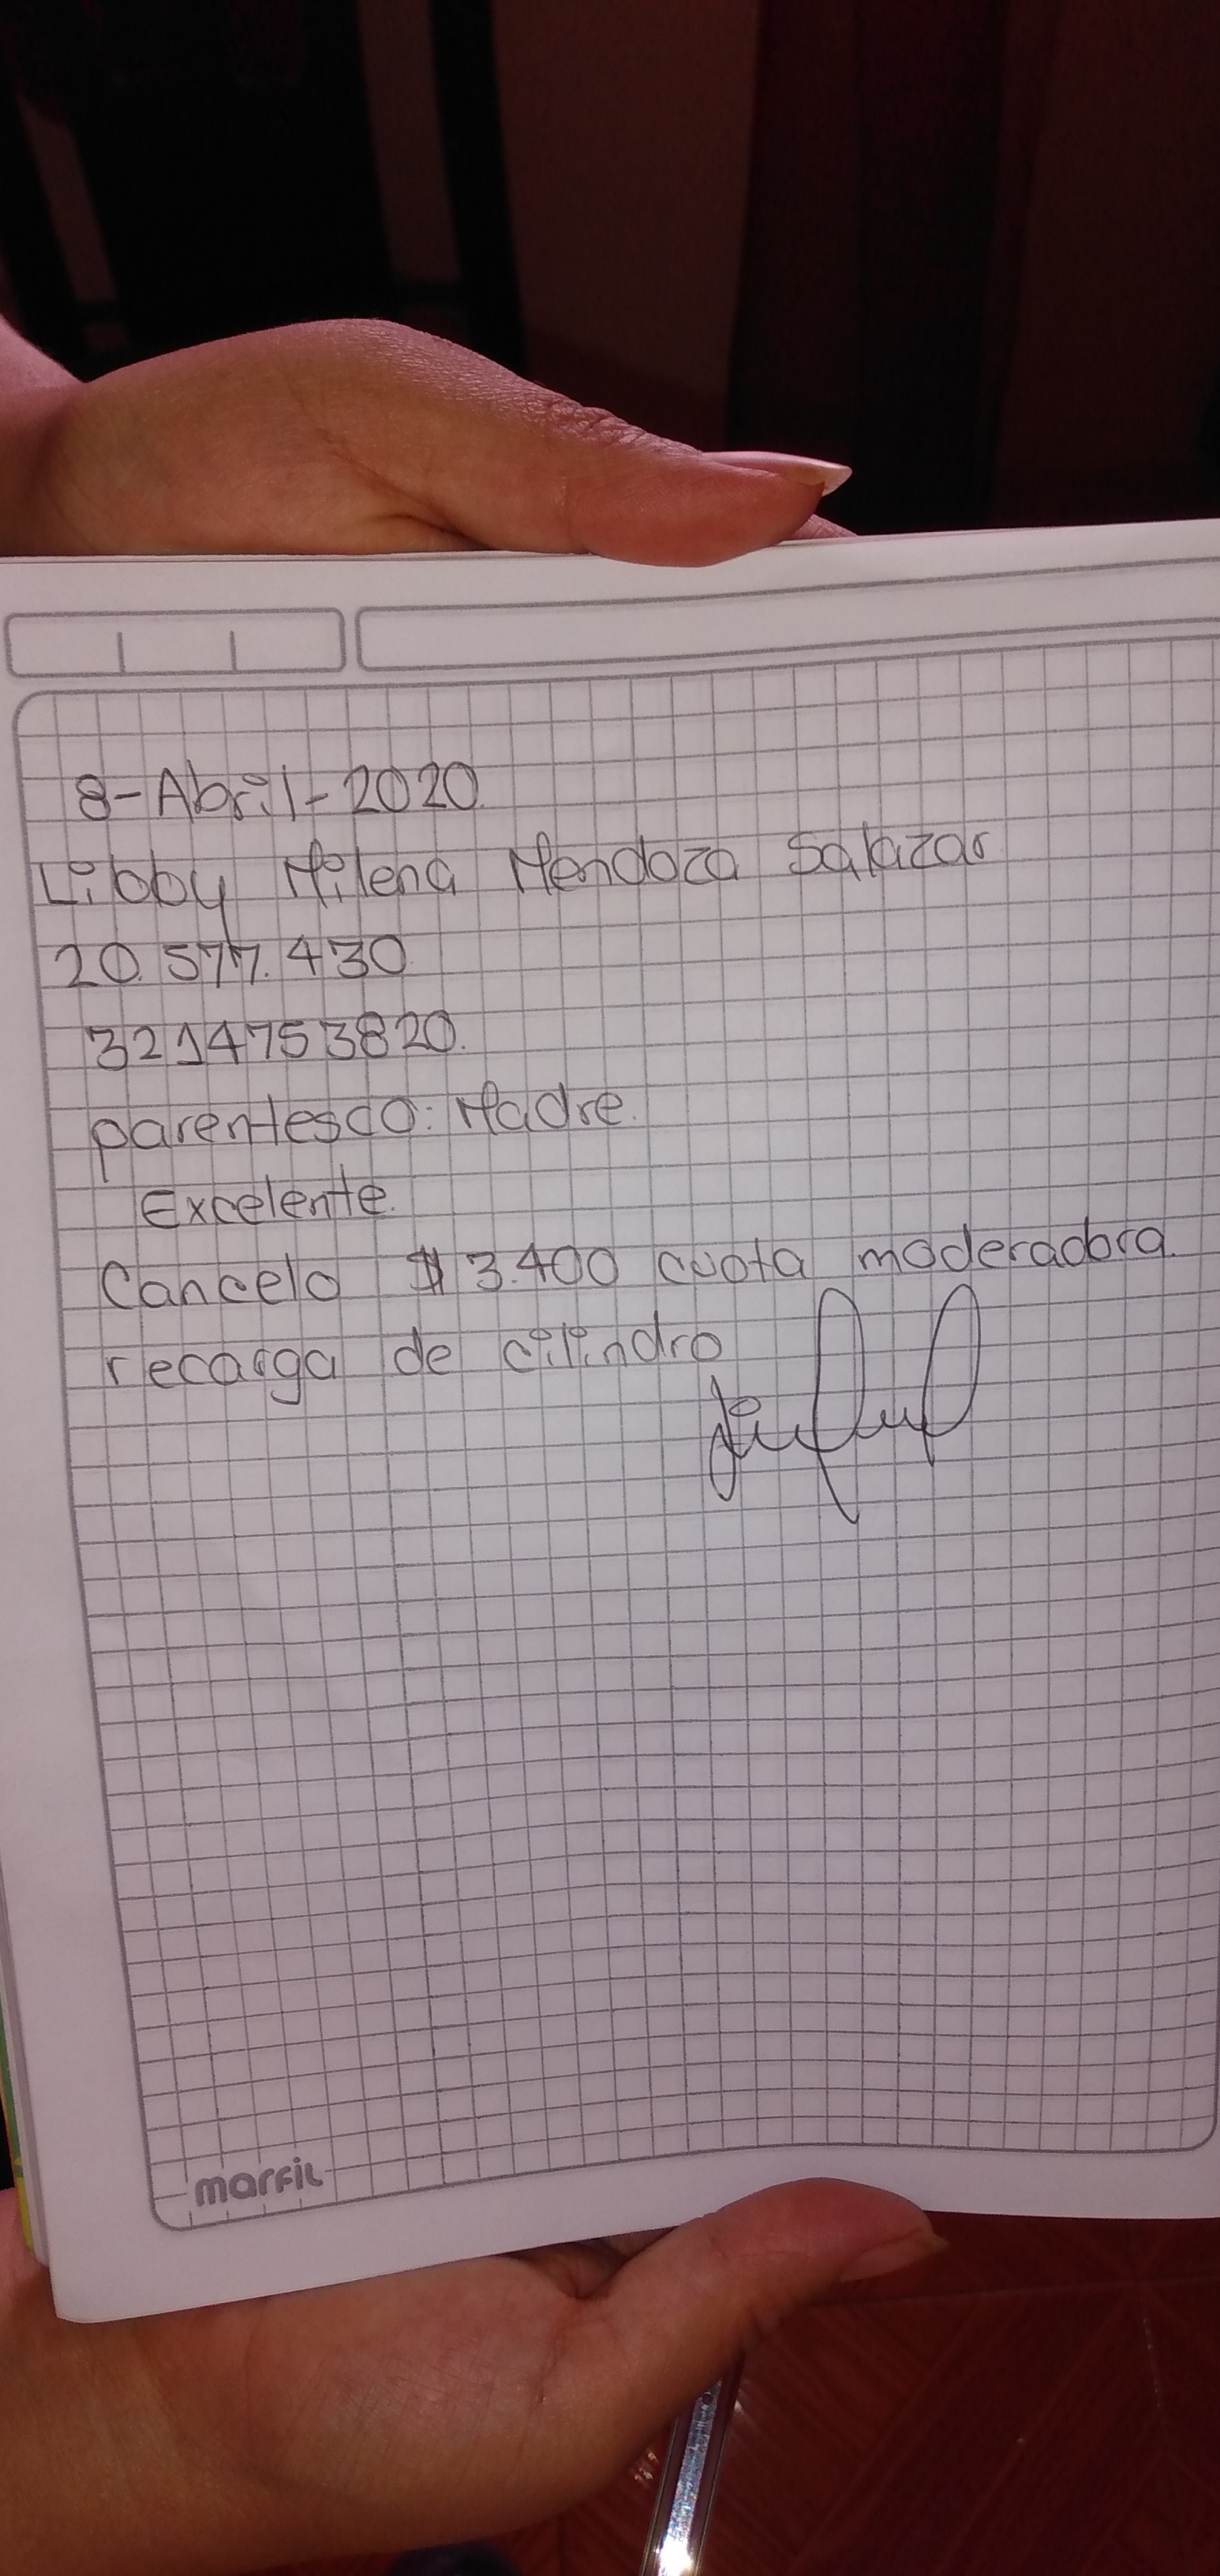 8-Abril-2020
Libby Milena Mendoza Salazar
20.577.430
3214753820.
parentesco: Madre.
Excelente.
Cancelo $ 3.400 cuota moderadora.
recarga de cilindro
marfil